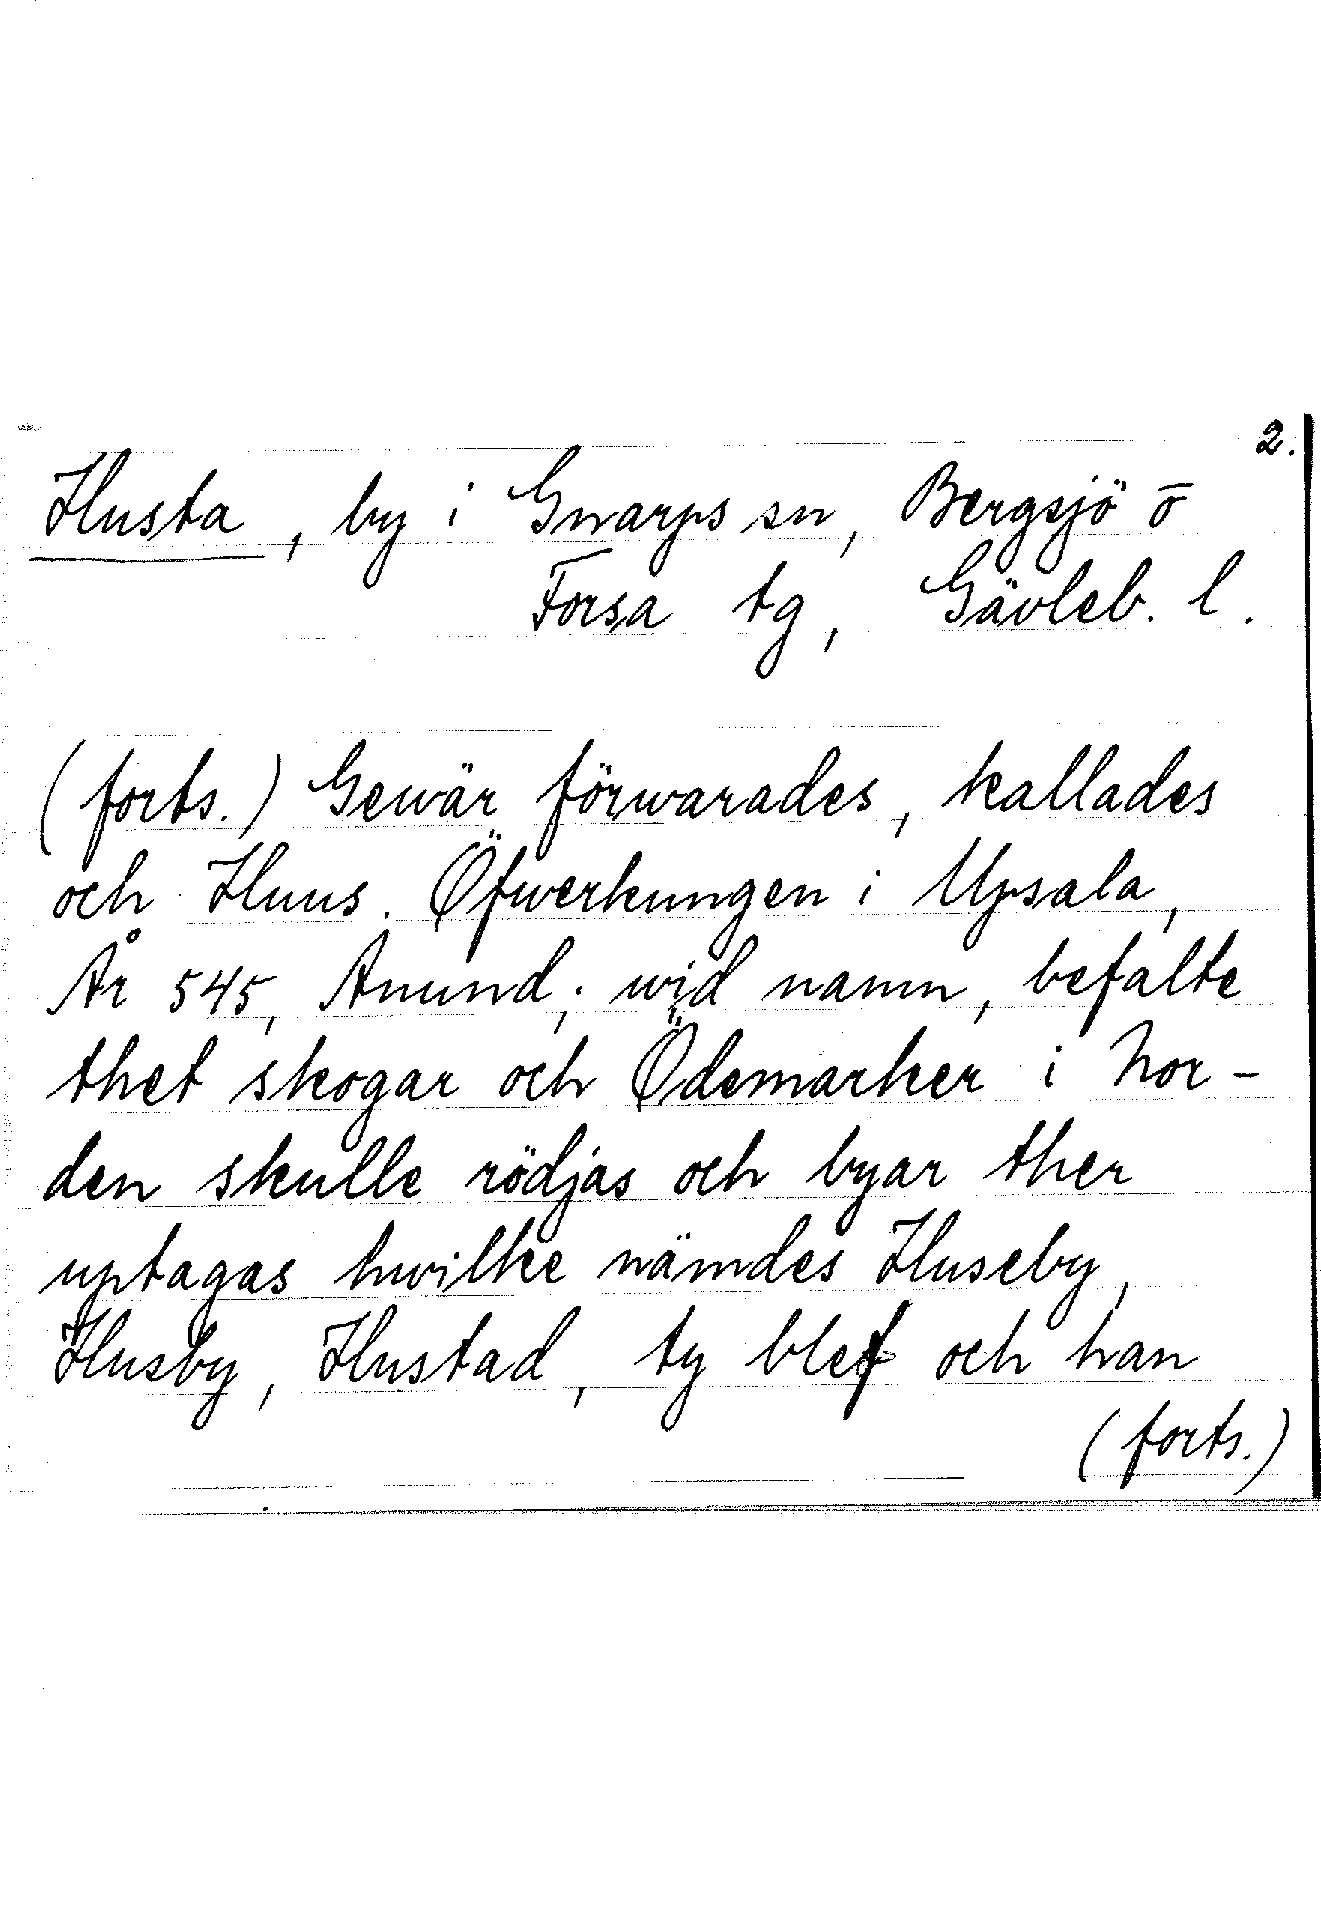 2.
Husta, by i Gnarps sn, Bergsjö o
Forsa tg, Gävleb. l.
(forts.) Gewär förwarades, kallades
och Huus. Öfwerkungen i Upsala,
År 545, Anund; wid namn, befalte
thet skogar och Ödemarker i Nor-
den skulle rödjas och byar ther
uptagas hwilke nämdes Huseby,
Husby, Hustad, ty blef och han
(forts.)